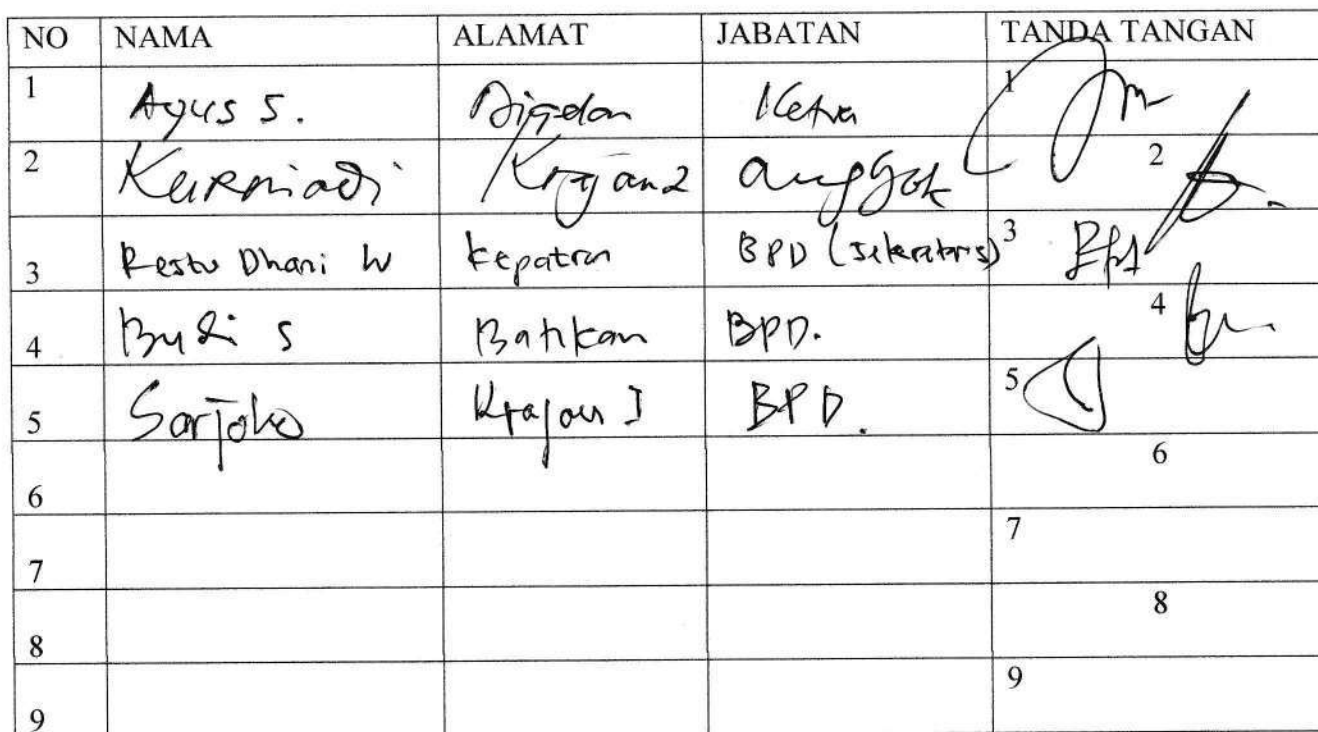 NO NAMA ALAMAT JABATAN TANDA TANGAN
1 Agus S. Ketua 1
2 Kurniadi Krajan 2 2
3 Restu Dhani W Kepatran BPD (sekretaris) 3
4 Budi S Batikan BPD. 4
5 Sarjoko Krajan I BPD. 5
6 6
7 7
8 8
9 9